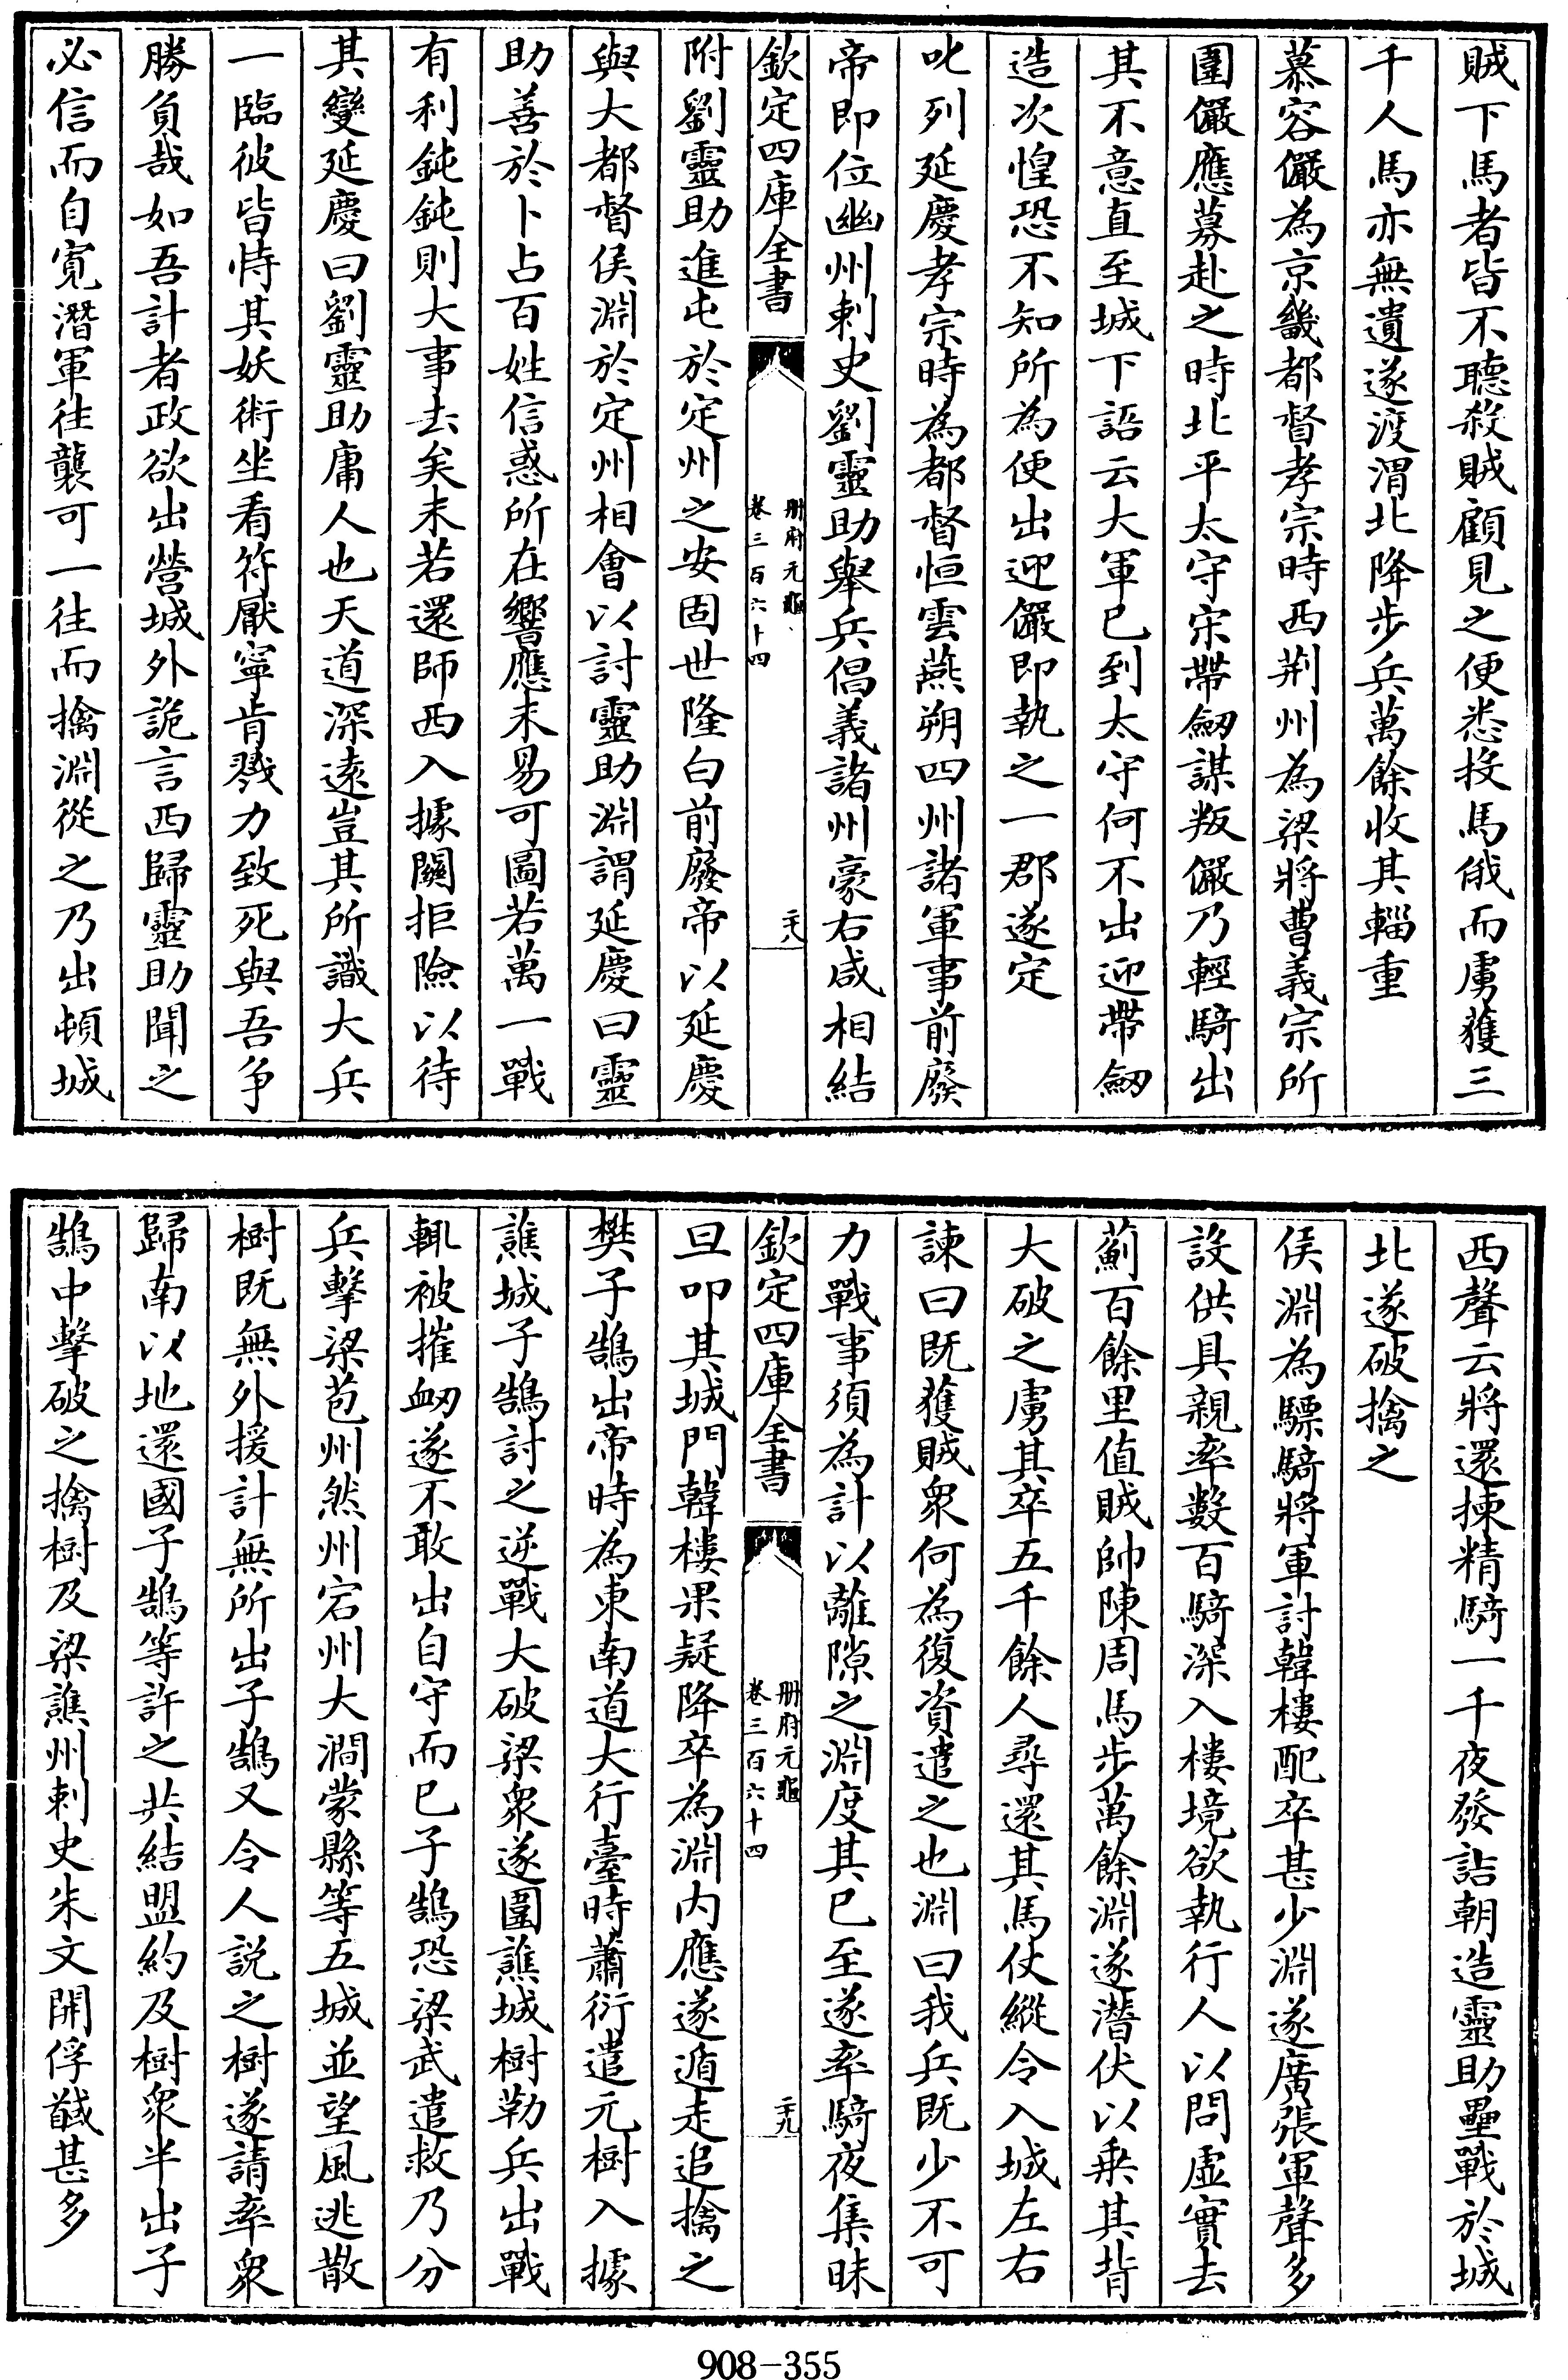 賊下馬者皆不聽殺賊顧見之便悉投馬俄而虜獲三
千人馬亦無遺遂渡渭北降步兵萬餘收其輜重
慕容儼為京畿都督孝宗時西荆州為梁將曹義宗所
圍儼應募赴之時北平太守宋帶劒謀叛儼乃輕騎出
其不意直至城下語云大軍已到太守何不出迎帶劒
造次惶恐不知所為便出迎儼即執之一郡遂定
叱列延慶孝宗時為都督恒雲燕朔四州諸軍事前廢
帝即位幽州刺史劉靈助舉兵倡義諸州豪右咸相結
欽定四庫全書
册府元龜
卷三百六十四
二十八
附劉靈助進屯於定州之安固世隆白前廢帝以延慶
與大都督侯淵於定州相會以討靈助淵謂延慶曰靈
助善於卜占百姓信惑所在響應未易可圖若萬一戰
有利鈍鈍則大事去矣未若還師西入據關拒險以待
其變延慶曰劉靈助庸人也天道深遠豈其所識大兵
一臨彼皆恃其妖術坐看符厭寧肯戮力致死與吾爭
勝負哉如吾計者政欲出營城外詭言西歸靈助聞之
必信而自寛潛軍往襲可一往而擒淵從之乃出頓城
西聲云將還揀精騎一千夜發詰朝造靈助壘戰於城
北遂破擒之
侯淵為驃騎將軍討韓樓配卒甚少淵遂廣張軍聲多
設供具親率數百騎深入樓境欲執行人以問虛實去
薊百餘里值賊帥陳周馬步萬餘淵遂潛伏以乗其背
大破之虜其卒五千餘人尋還其馬仗縱令入城左右
諫曰既獲賊衆何為復資遣之也淵曰我兵既少不可
力戰事須為計以離隙之淵度其已至遂率騎夜集昧
欽定四庫全書
册府元龜
卷三百六十四
二十九
旦叩其城門韓樓果疑降卒為淵内應遂遁走追擒之
樊子鵠出帝時為東南道大行臺時蕭衍遣元樹入據
譙城子鵠討之逆戰大破梁衆遂圍譙城樹勒兵出戰
輒被摧衂遂不敢出自守而已子鵠恐梁武遣救乃分
兵擊梁苞州然州宕州大澗蒙縣等五城並望風逃散
樹既無外援計無所出子鵠又令人說之樹遂請率衆
歸南以地還國子鵠等許之共結盟約及樹衆半出子
鵠中擊破之擒樹及梁譙州刺史朱文開俘馘甚多
908-355